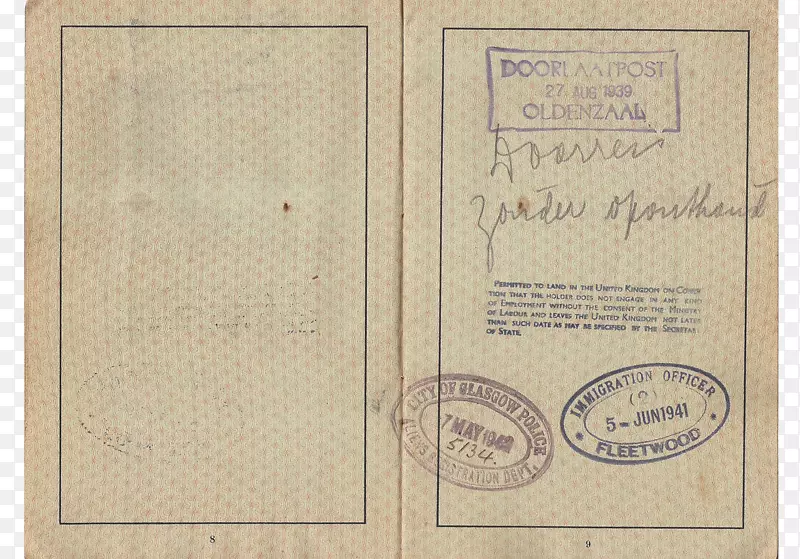 DOORLAATPOST
27 AUG 1939
OLDENZAAL
Doorreis
zonder oponthoud
PERMITTED TO LAND IN THE UNITED KINGDOM ON CONDI-
TION THAT THE HOLDER DOES NOT ENGAGE IN ANY KIND
OF EMPLOYMENT WITHOUT THE CONSENT OF THE MINISTRY
OF LABOUR AND LEAVES THE UNITED KINGDOM NOT LATER
THAN SUCH DATE AS MAY BE SPECIFIED BY THE SECRETARY
OF STATE.
CITY OF GLASGOW POLICE
7 MAY 194
5134.
ALIENS REGISTRATION DEPT.
IMMIGRATION OFFICER
(2)
5 - JUN 1941
FLEETWOOD
8
9